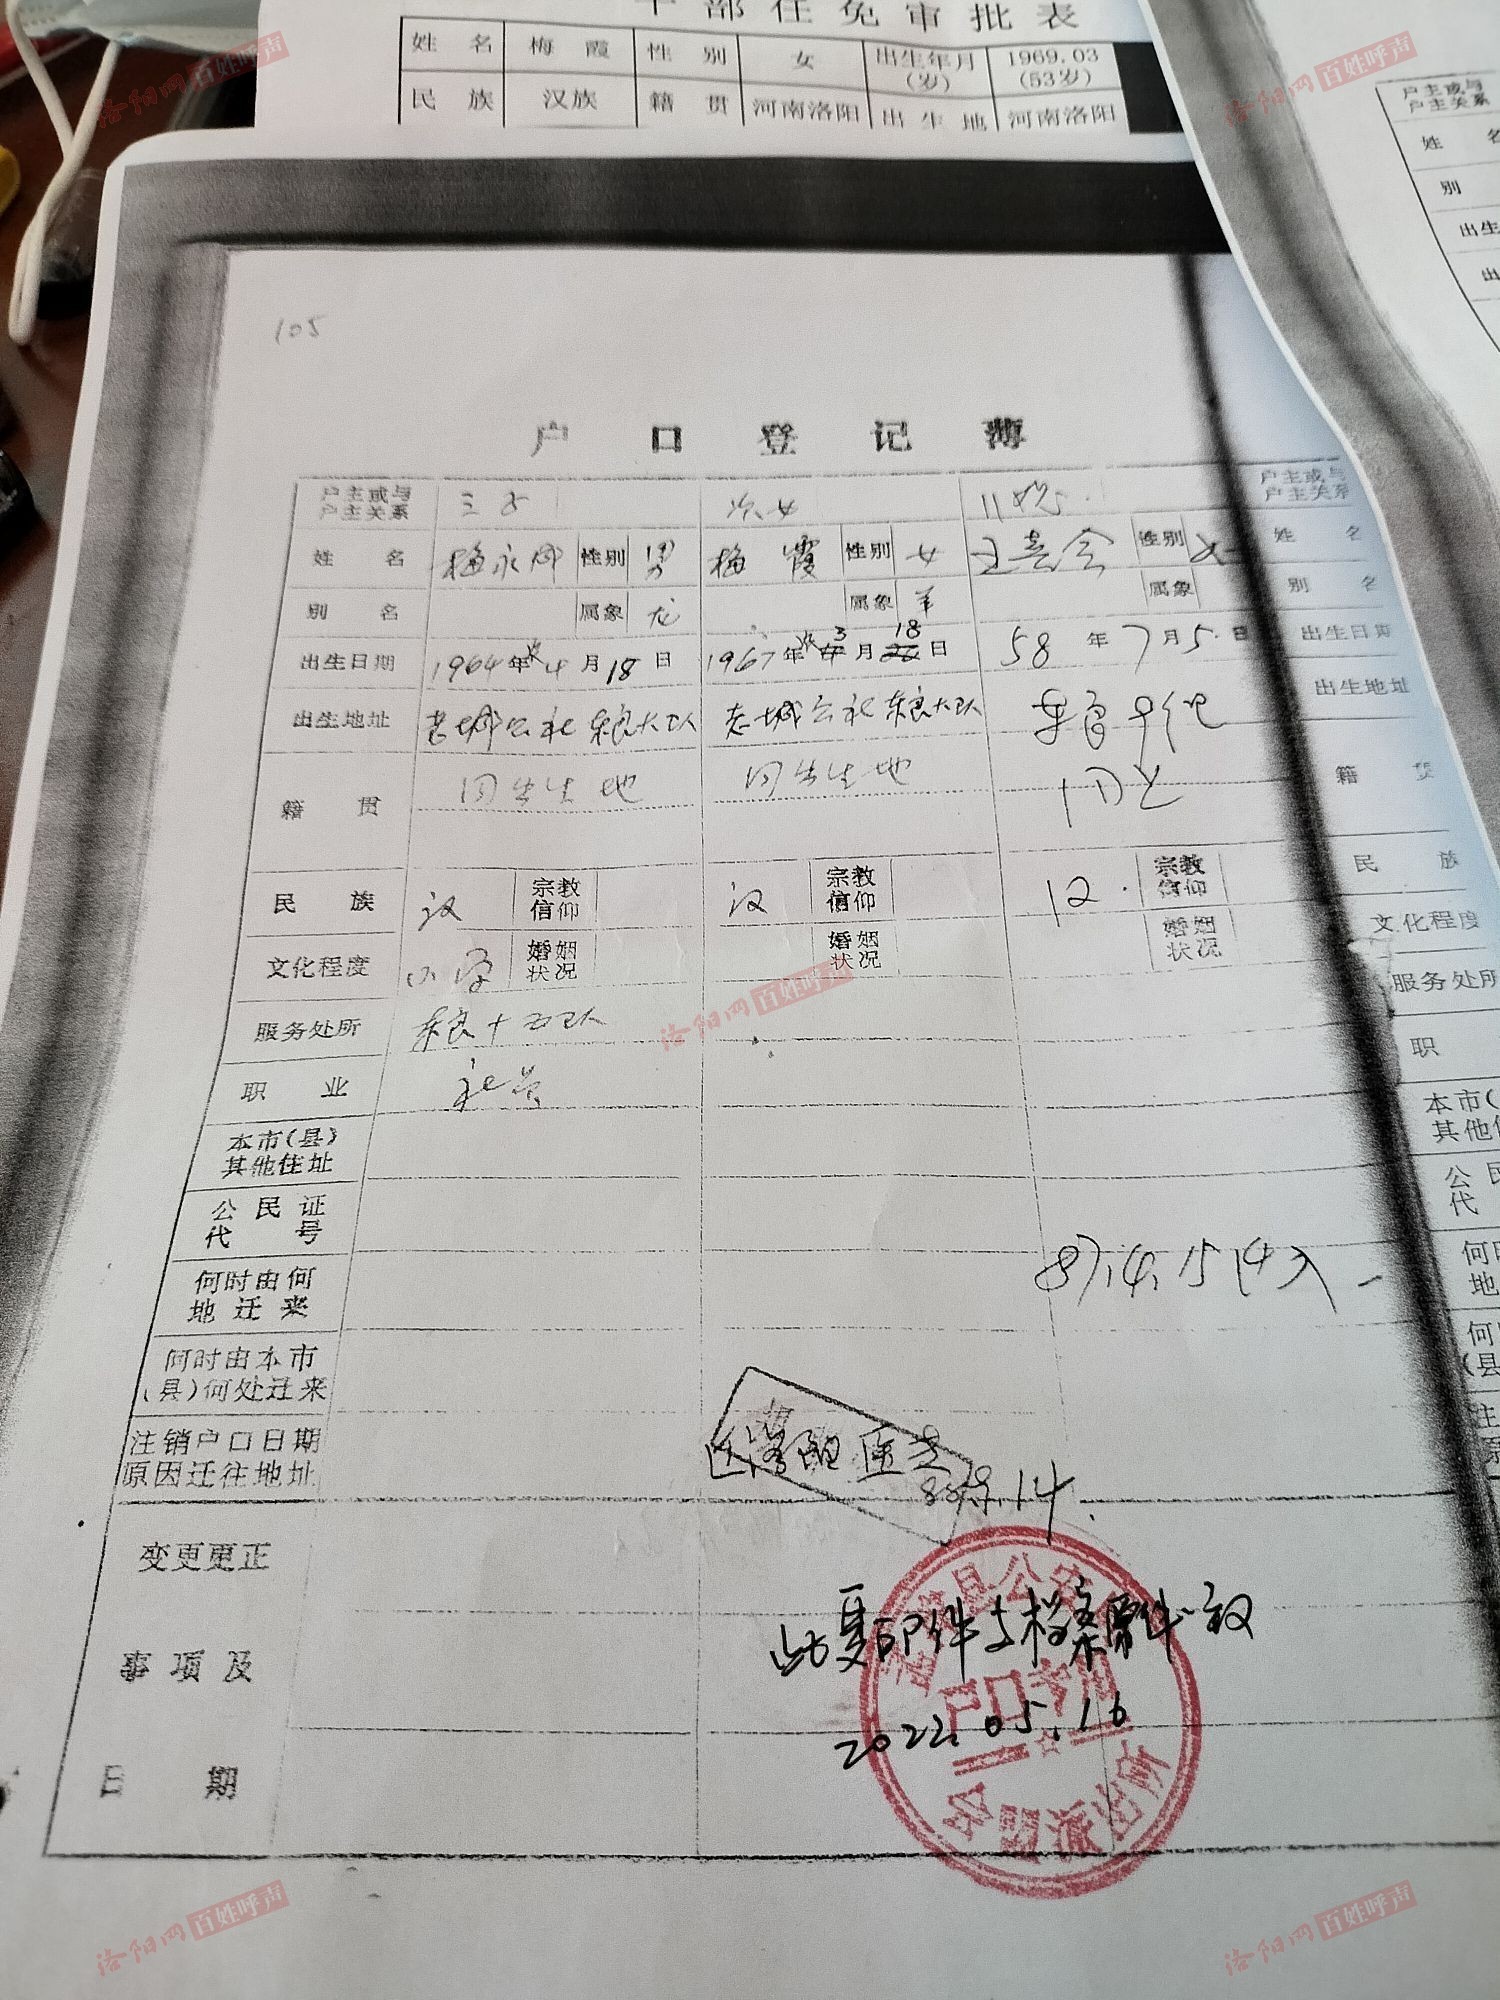 干部任免审批表
姓名 梅霞 性别 女 出生年月(岁) 1969.03(53岁)
民族 汉族 籍贯 河南洛阳 出生地 河南洛阳
户主或与
户主关系
姓
别
出生
出
105
户口登记薄
户主或与户主关系 三子 次女 儿媳 户主或与户主关系
姓名 梅永 性别 男 梅霞 性别 女 王 会 性别 女 姓名
别名 属象 龙 属象 羊 属象 别名
出生日期 1964年4月18日 1967年3月18日 58年7月5日 出生日期
出生地址 老城公社东良大队 老城公社东良大队 出生地址
籍贯 同出生地 同出生地 同上 籍贯
民族 汉 宗教信仰 汉 宗教信仰 汉 宗教信仰 民族
文化程度 小学 婚姻状况 婚姻状况 婚姻状况 文化程度
服务处所 东良十 队 服务处所
职业 社员 职
本市(县)其他住址 本市(其他住
公民证代号 公民代
何时由何地迁来 87.4.15 入 何时地
何时由本市(县)何处迁来 何(县
注销户口日期原因迁往地址 迁洛阳医专
变更更正
事项及
日期
此复印件与档案原件一致
2022.05.16
县公安
户口专用
会盟派出所
洛阳网 百姓呼声
洛阳网 百姓呼声
洛阳网 百姓呼声
洛阳网 百姓呼声
洛阳网 百姓呼声